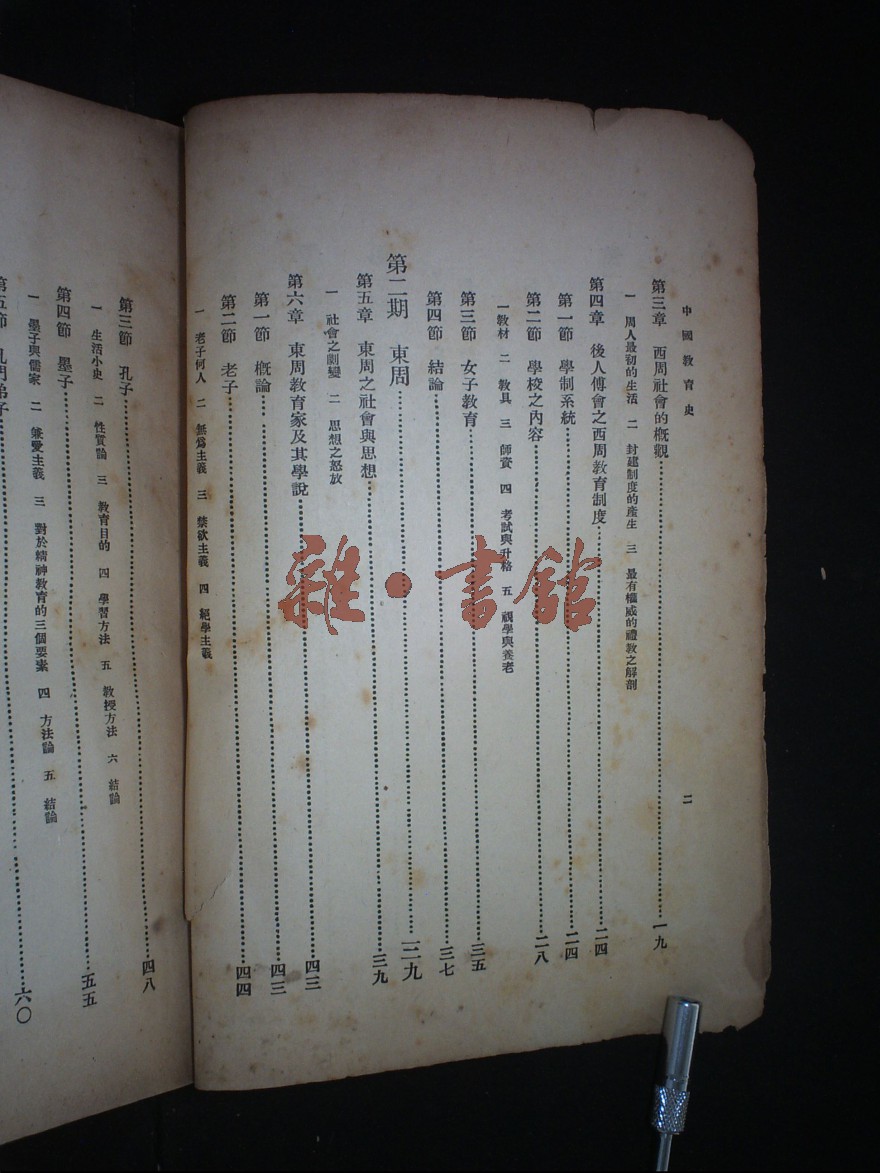 中國教育史 二
第三章 西周社會的概觀……一九
一 周人最初的生活 二 封建制度的產生 三 最有權威的禮教之解剖
第四章 後人傅會之西周教育制度……二四
第一節 學制系統……二四
第二節 學校之內容……二八
一 教材 二 教具 三 師資 四 考試與升格 五 視學與養老
第三節 女子教育……三五
第四節 結論……三七
第二期 東周……三九
第五章 東周之社會與思想……三九
一 社會之劇變 二 思想之怒放
第六章 東周教育家及其學說……四三
第一節 概論……四三
第二節 老子……四四
一 老子何人 二 無為主義 三 禁欲主義 四 絕學主義
第三節 孔子……四八
一 生活小史 二 性質論 三 教育目的 四 學習方法 五 教授方法 六 結論
第四節 墨子……五五
一 墨子與儒家 二 兼愛主義 三 對於精神教育的三個要素 四 方法論 五 結論
第五節 孔門弟子……六〇
雜·書館